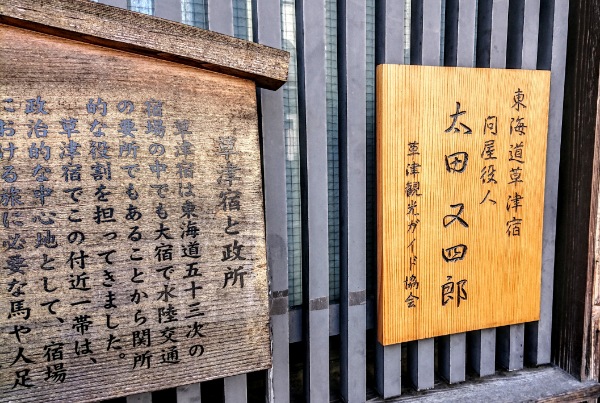 草津宿と政所
草津宿は東海道五十三次の
宿場の中でも大宿で水陸交通
の要所でもあることから関所
的な役割を担ってきました。
草津宿でこの付近一帯は、
政治的な中心地として、宿場
における旅に必要な馬や人足
東海道草津宿
問屋役人
太田又四郎
草津観光ガイド協会